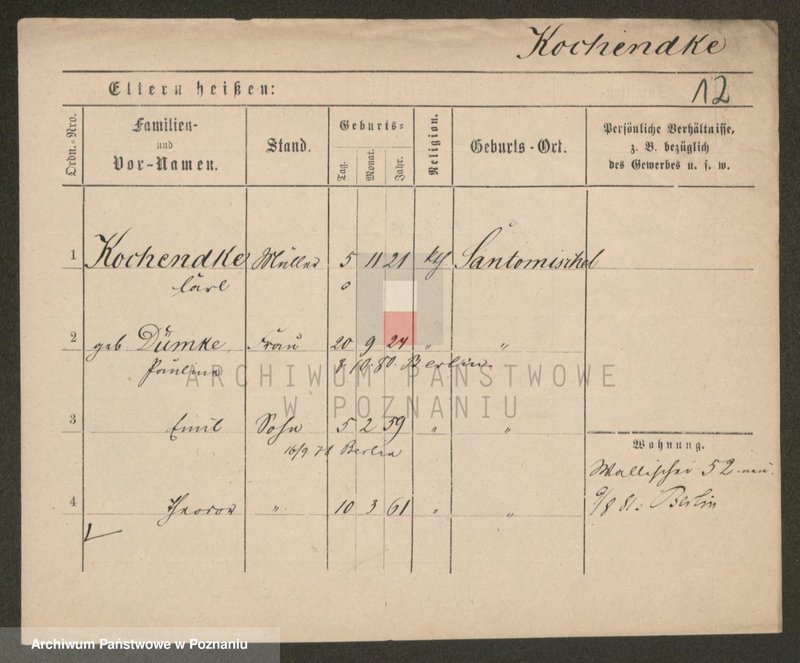 Kochendke
12
Eltern heißen:
Ordn.-Nro.
Familien-
und
Vor-Namen.
Stand.
Geburts-
Tag.
Monat.
Jahr.
Religion.
Geburts-Ort.
Persönliche Verhältnisse,
z. B. bezüglich
des Gewerbes u. s. w.
1 Kochendke Müller 5 11 21 kth. Santomischel
Carl
2 geb. Dümke, Frau 20 9 24 " "
Pauline 10.80. Berlin.
3 Emil Sohn 5 2 59 " "
16/9 78 Berlin
Wohnung.
Wallischei 52
4 Theodor " 10 3 61 " "
9/8 81. Berlin
ARCHIWUM PAŃSTWOWE
W POZNANIU
Archiwum Państwowe w Poznaniu